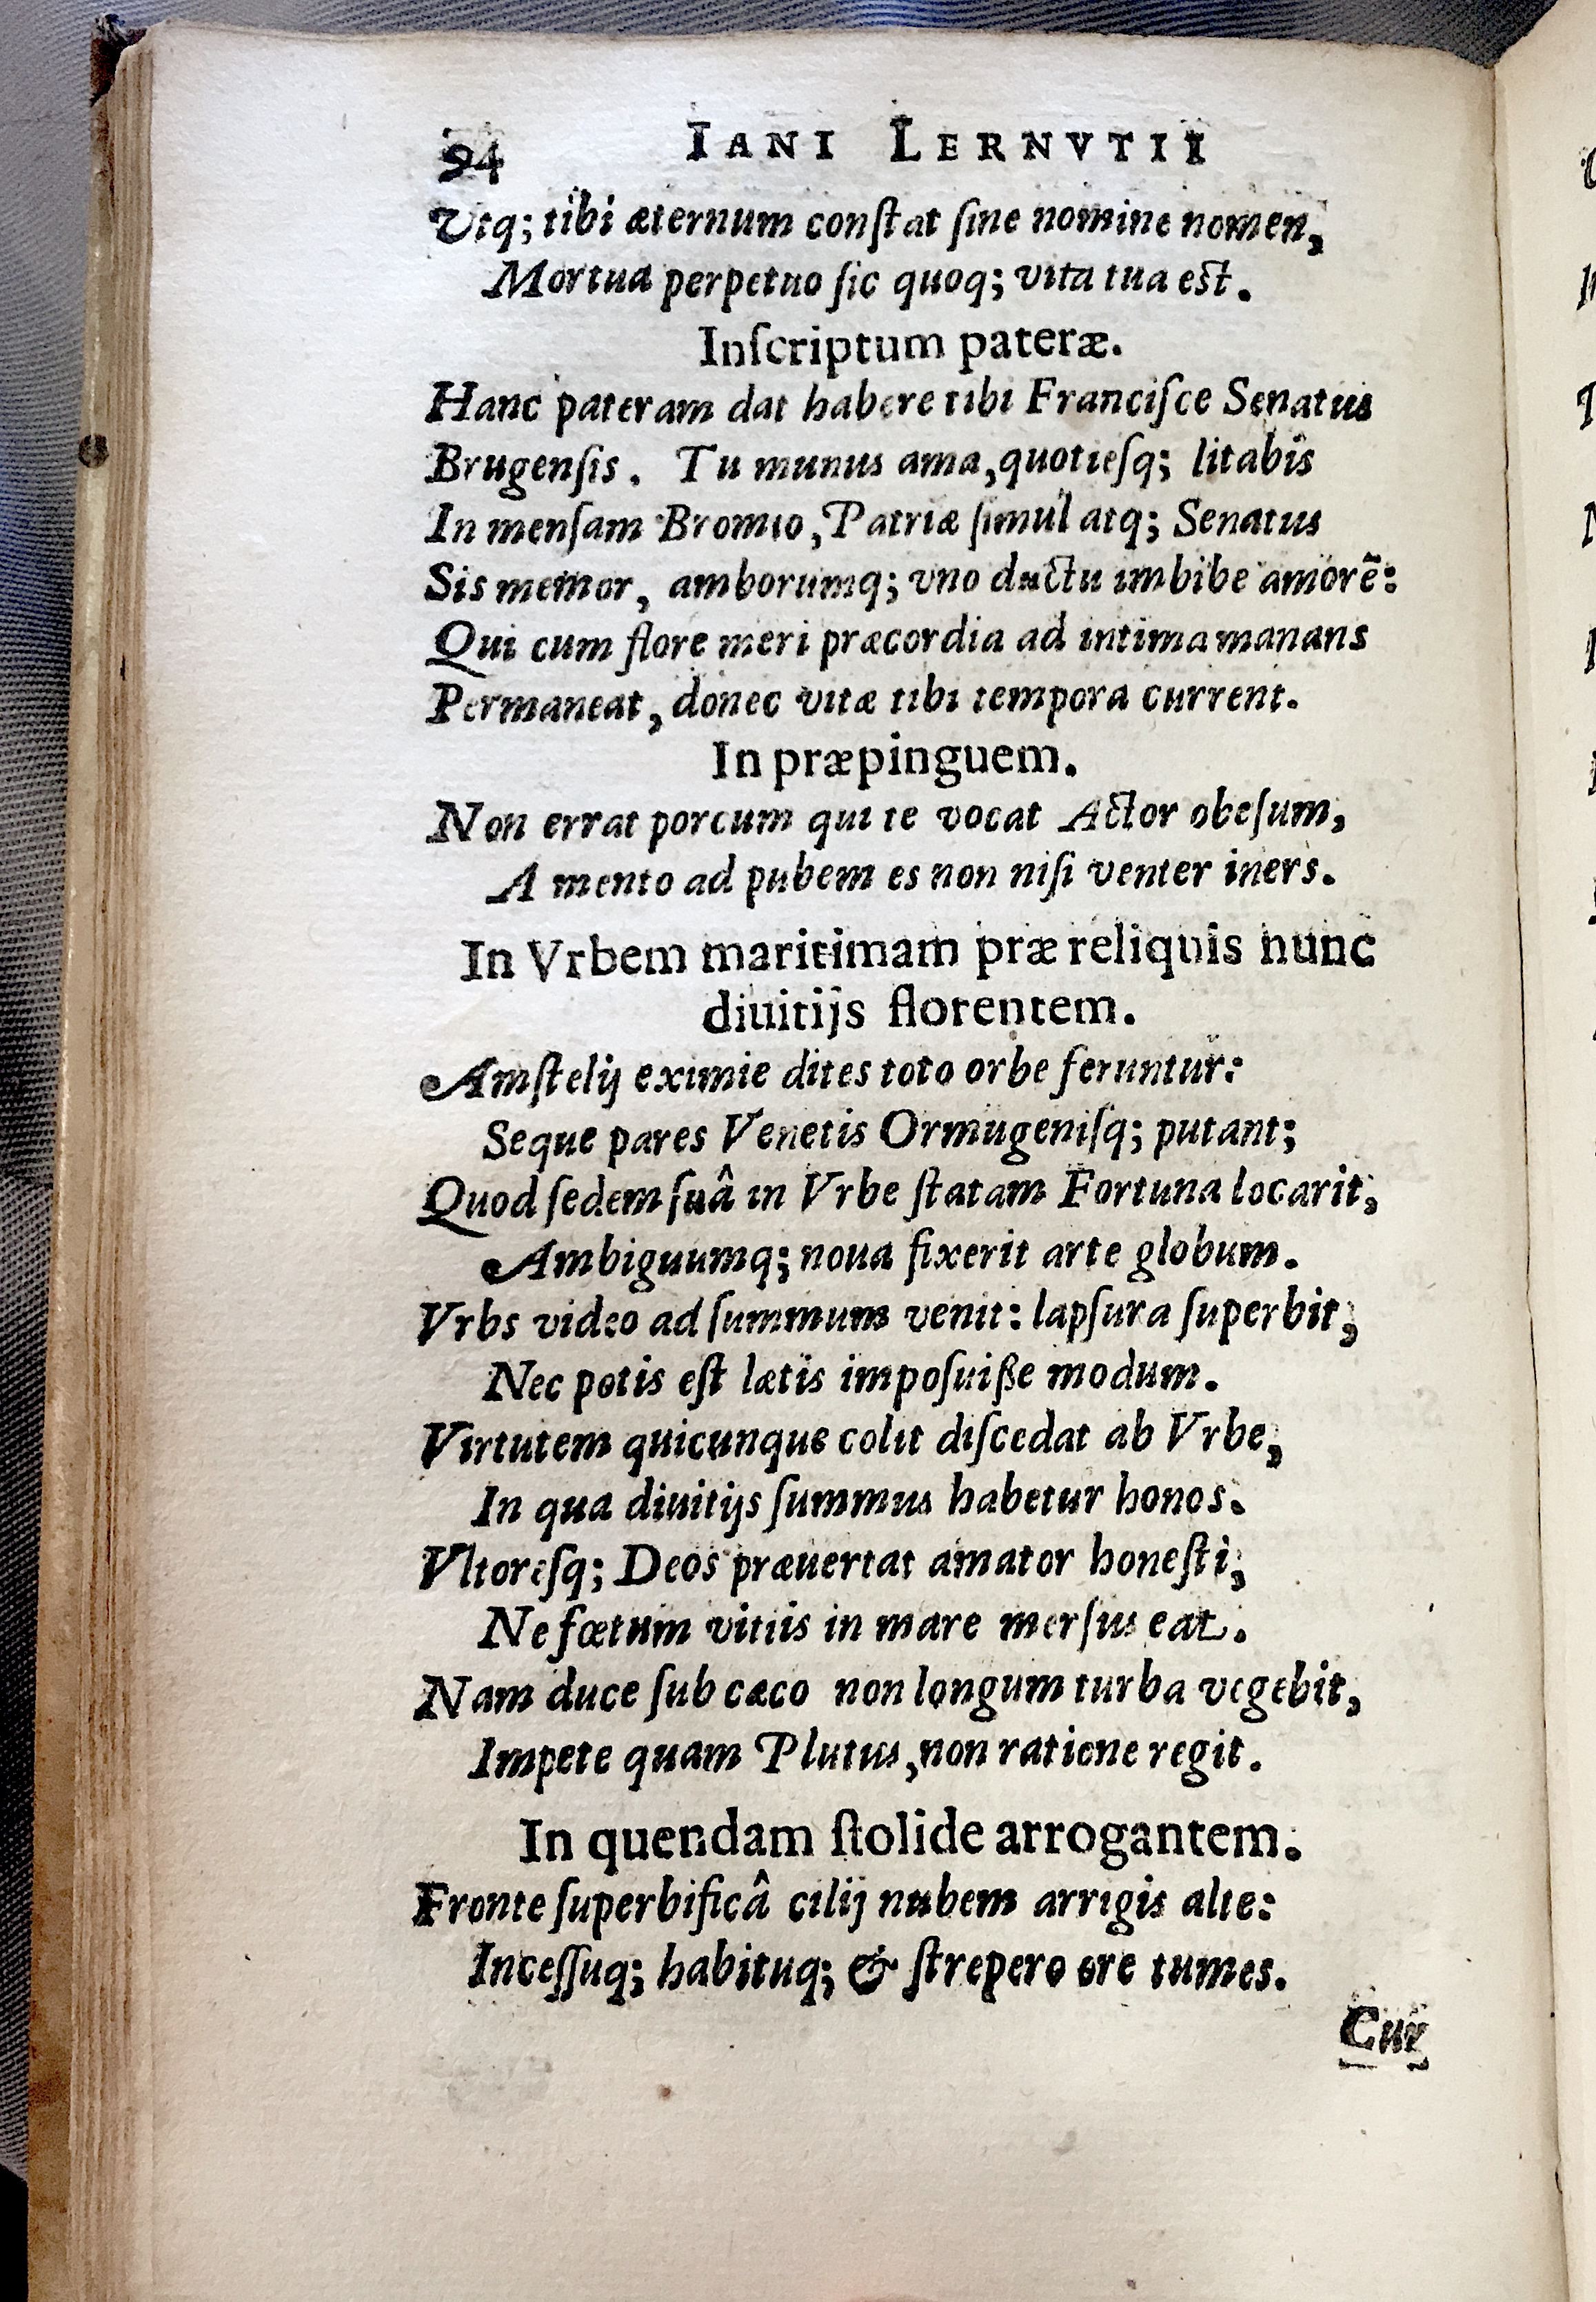 94 IANI LERNVTII
Vtq; tibi æternum conſtat ſine nomine nomen,
Mortua perpetuo ſic quoq; vita tua est.
Inſcriptum pateræ.
Hanc pateram dat habere tibi Franciſce Senatus
Brugenſis. Tu munus ama, quotieſq; litabis
In menſam Bromio, Patriæ ſimul atq; Senatus
Sis memor, amborumq; vno ductu imbibe amorẽ:
Qui cum flore meri præcordia ad intima manans
Permaneat, donec vitæ tibi tempora current.
In præpinguem.
Non errat porcum qui te vocat Actor obeſum,
A mento ad pubem es non niſi venter iners.
In Vrbem maritimam præ reliquis nunc
diuitijs florentem.
Amſtelij eximie dites toto orbe feruntur:
Seque pares Venetis Ormugeniſq; putant;
Quod ſedem ſuâ in Vrbe ſtatam Fortuna locarit,
Ambiguumq; noua fixerit arte globum.
Vrbs video ad ſummum venit: lapſura ſuperbit,
Nec potis eſt lætis impoſuiße modum.
Virtutem quicunque colit diſcedat ab Vrbe,
In qua diuitijs ſummus habetur honos.
Vltoreſq; Deos præuertat amator honeſti,
Ne fœtum vitiis in mare merſus eat.
Nam duce ſub cæco non longum turba vegebit,
Impete quam Plutus, non ratione regit.
In quendam ſtolide arrogantem.
Fronte ſuperbificâ cilij nubem arrigis alte:
Inceſſuq; habituq; & ſtrepero ore tumes.
Cur